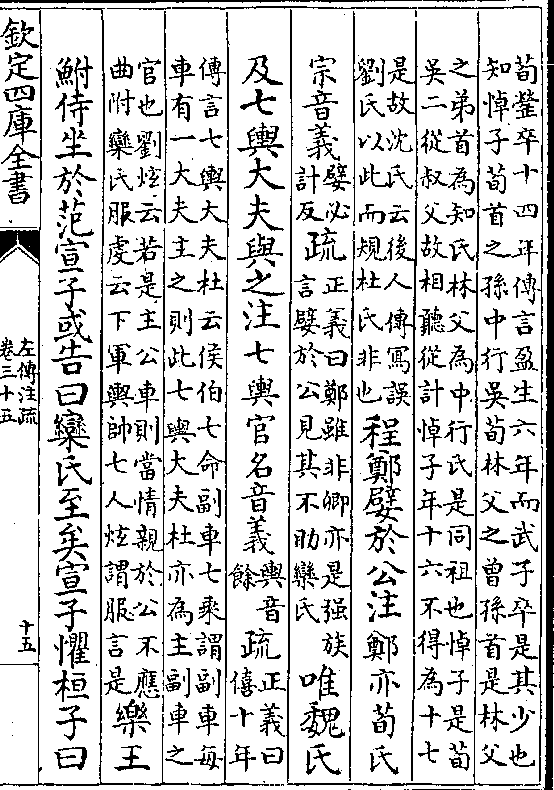 荀罃卒十四年傳言盈生六年而武子卒是其少也
知悼子荀首之孫中行吳荀林父之曾孫首是林父
之弟首為知氏林父為中行氏是同祖也悼子是荀
吳二從叔父故相聽從計悼子年十六不得為十七
是故沈氏云後人傳寫誤
劉氏以此而規杜氏非也
程鄭嬖於公注鄭亦荀氏
宗音義
嬖必
計反
疏
正義曰鄭雖非卿亦是强族
言嬖於公見其不助欒氏
唯魏氏
及七輿大夫與之注七輿官名音義
輿音
餘
疏
正義曰
僖十年
傳言七輿大夫杜云侯伯七命副車七乘謂副車每
車有一大夫主之則此七輿大夫杜亦為主副車之
官也劉炫云若是主公車則當情親於公不應
曲附欒氏服虔云下軍輿帥七人炫謂服言是
樂王
鮒侍坐於范宣子或告曰欒氏至矣宣子懼桓子曰
欽定四庫全書
左傳注疏
卷三十五
十五